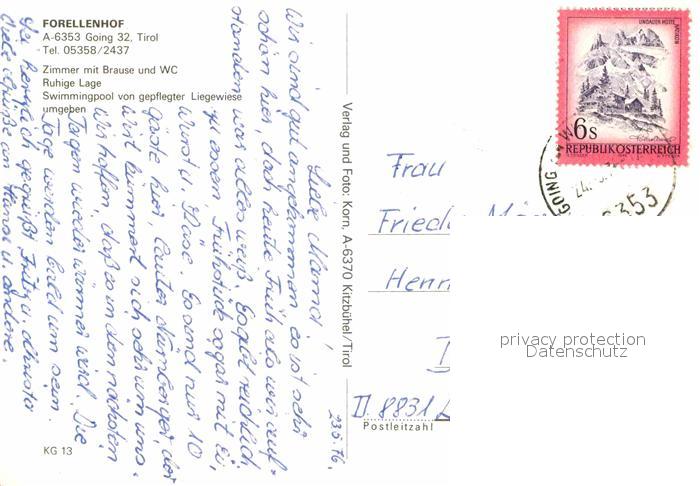 FORELLENHOF
A-6353 Going 32, Tirol
Tel. 05358/2437
Zimmer mit Brause und WC
Ruhige Lage
Swimmingpool von gepflegter Liegewiese
umgeben
KG 13
Verlag und Foto: Korn, A-6370 Kitzbühel/Tirol
23.5.76.
Liebe Mama!
Wir sind gut angekommen es ist sehr
schön hier, doch heute Früh als wir auf-
standen war alles weiß. Es gibt reichlich
zu essen. Frühstück sogar mit Ei,
Wurst u. Käse. Es sind nur 10
Gäste hier, lauter Nürnberger, der
Wirt kümmert sich sehr um uns.
Wir hoffen, daß es in den nächsten
Tagen wieder wärmer wird. Die
Tage werden bald um sein.
Sei herzlich gegrüßt Fritz u.
Viele Grüße an Hans u. andere.
LINDAUER HÜTTE
6s
REPUBLIK ÖSTERREICH
GOING
6353
Frau
Friede
Henn
D. 8831
Postleitzahl
privacy protection
Datenschutz